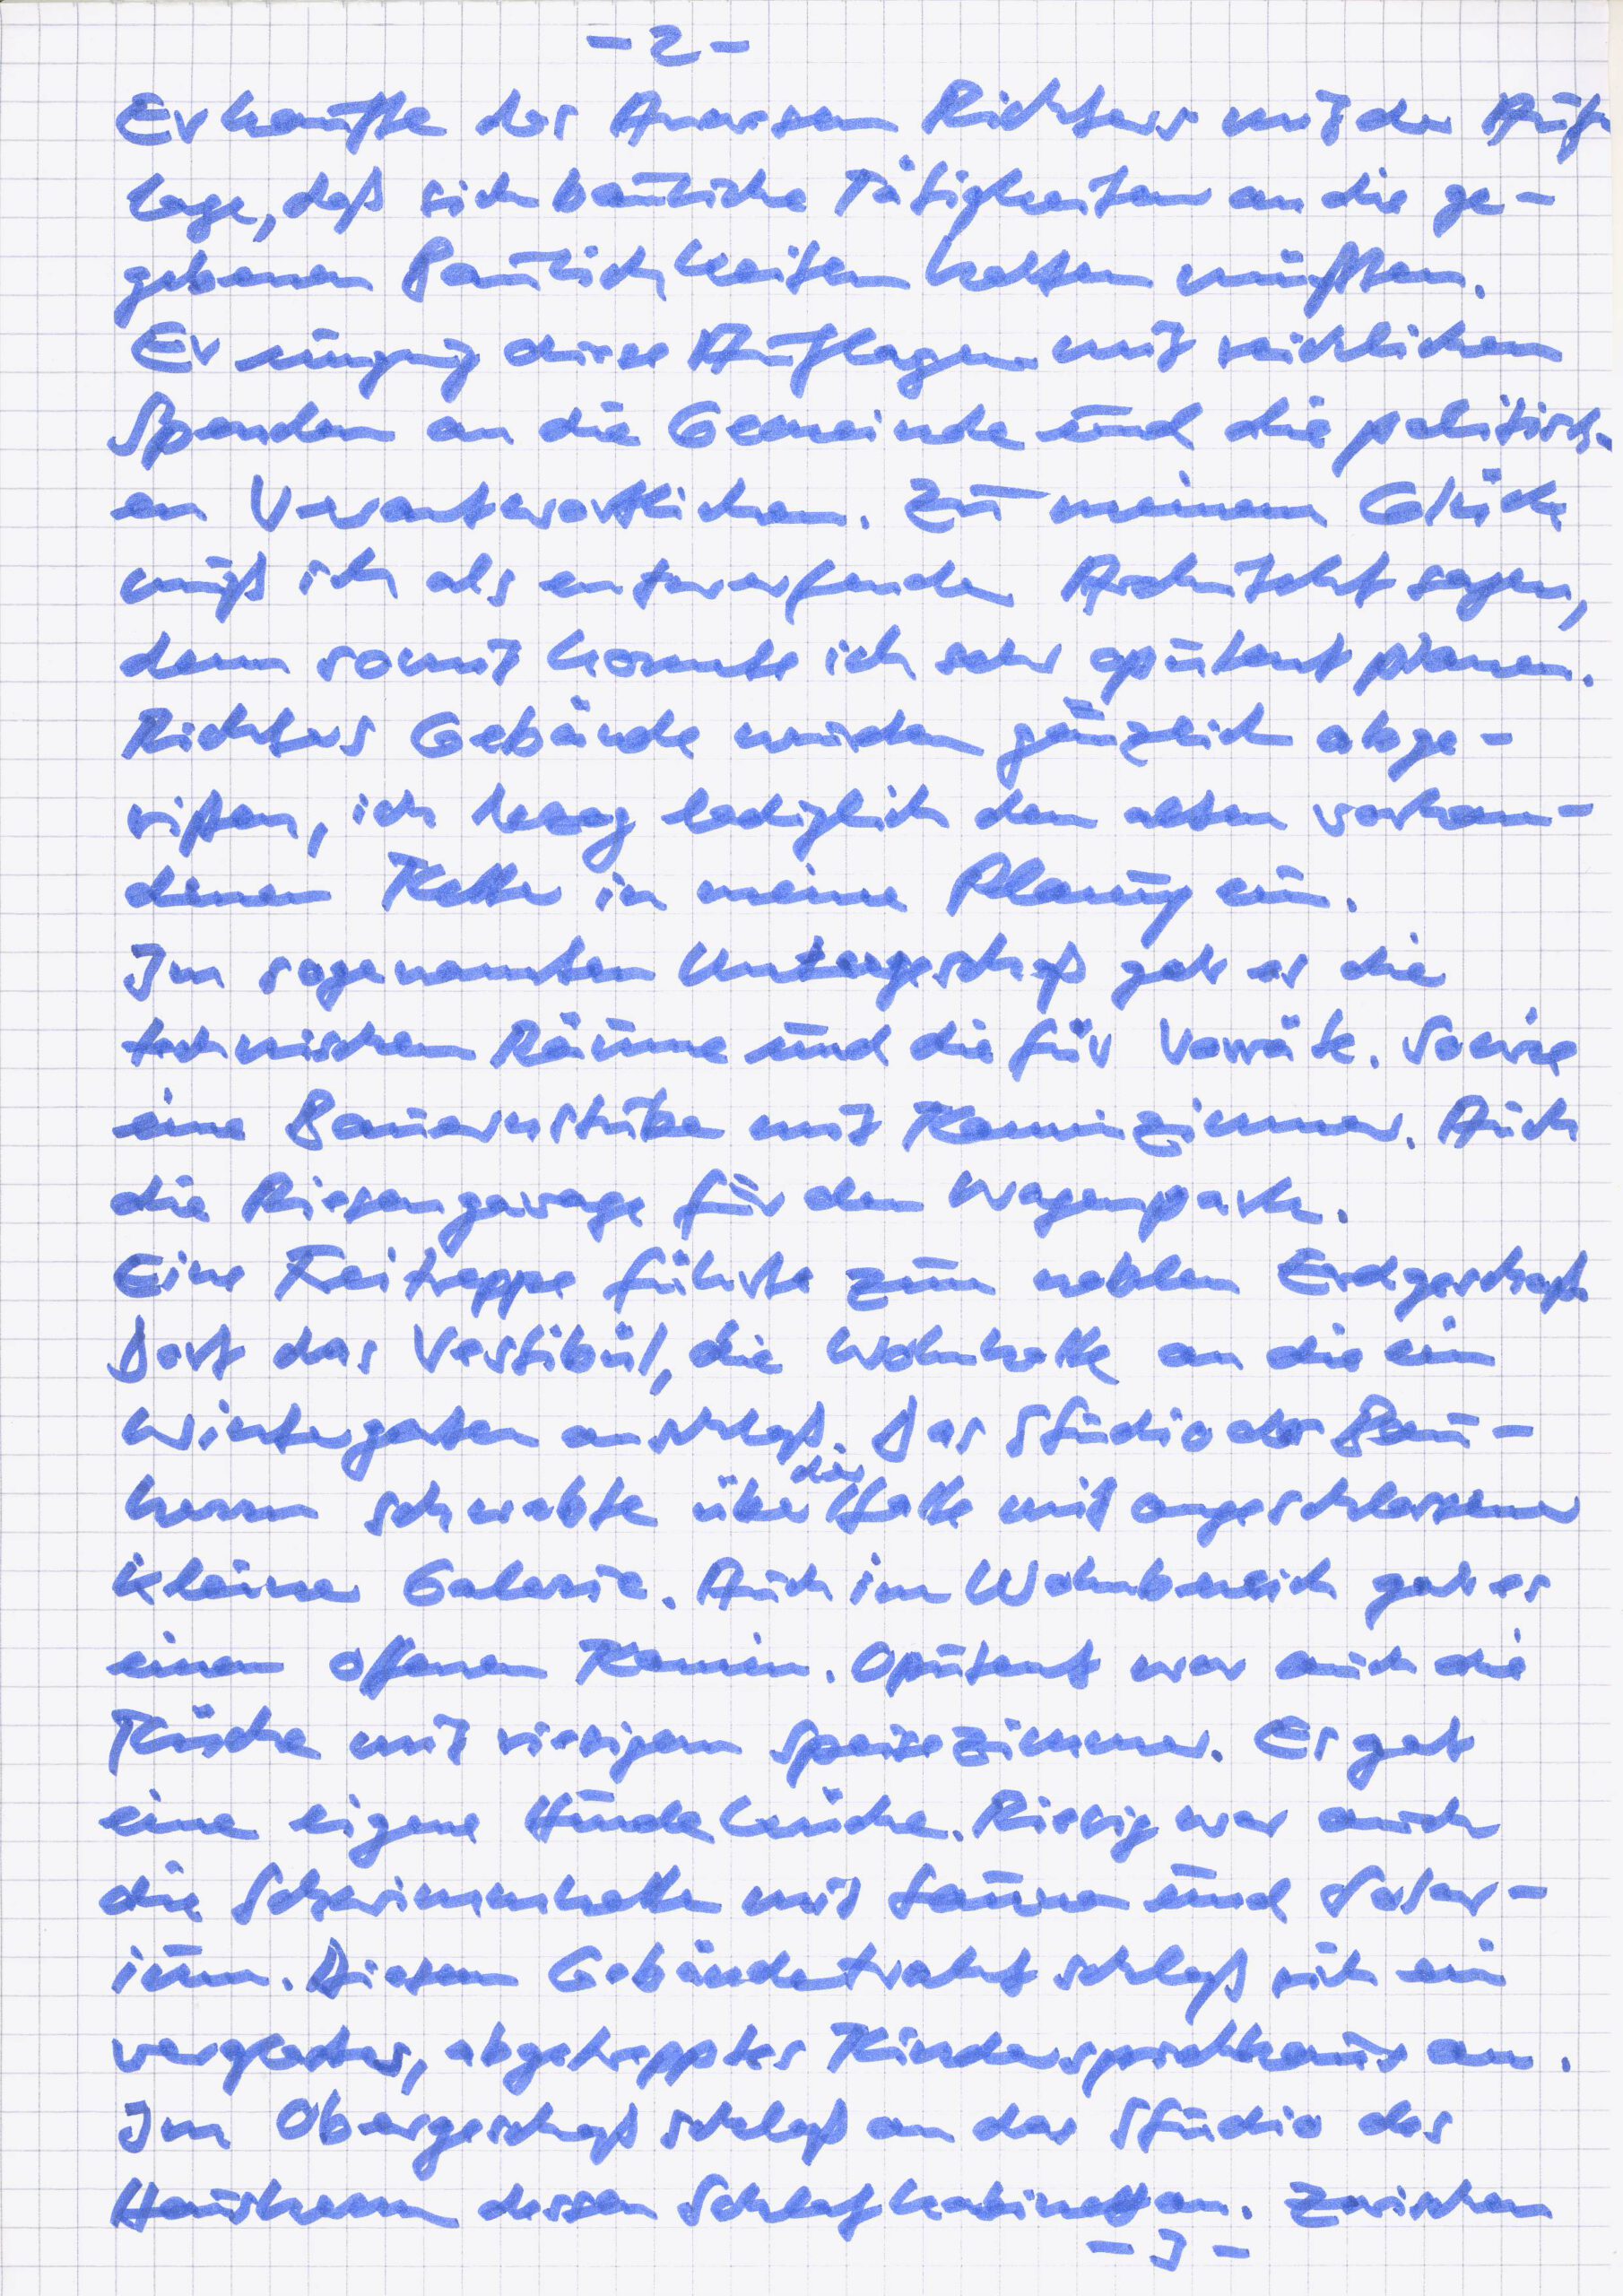 - 2 -
Er kaufte das Anwesen Richters mit der Auf-
lage, daß sich bauliche Tätigkeiten an die ge-
gebenen Baulichkeiten halten müßten.
Er umging diese Auflagen mit reichlichen
Spenden an die Gemeinde und die politisch-
en Verantwortlichen. Zu meinem Glück
muß ich als entwerfender Architekt sagen,
denn somit konnte ich sehr opulent planen.
Richters Gebäude wurden gänzlich abge-
rißen, ich bezog lediglich den alten vorhan-
denen Keller in meine Planung ein.
Im sogenannten Untergeschoß gab es die
technischen Räume und die für Vorräte. Sowie
eine Bauernstube mit Kaminzimmer. Auch
die Riesengarage für den Wagenpark.
Eine Freitreppe führte zum noblen Erdgeschoß.
Dort das Vestibül, die Wohnhalle an die ein
Wintergarten anschloß. Das Studio des Bau-
herrn schwebte über die Halle mit angeschlossener
kleiner Galerie. Auch im Wohnbereich gab es
einen offenen Kamin. Opulent war auch die
Küche mit riesigem Speisezimmer. Es gab
eine eigene Hundeküche. Riesig war auch
die Schwimmhalle mit Sauna und Solar-
ium. Diesem Gebäudetrakt schloß sich ein
verglastes, abgetrepptes Kinderspielhaus an.
Im Obergeschoß schloß an das Studio des
Hausherrn dessen Schlafkabinett an. Zwischen
- 3 -